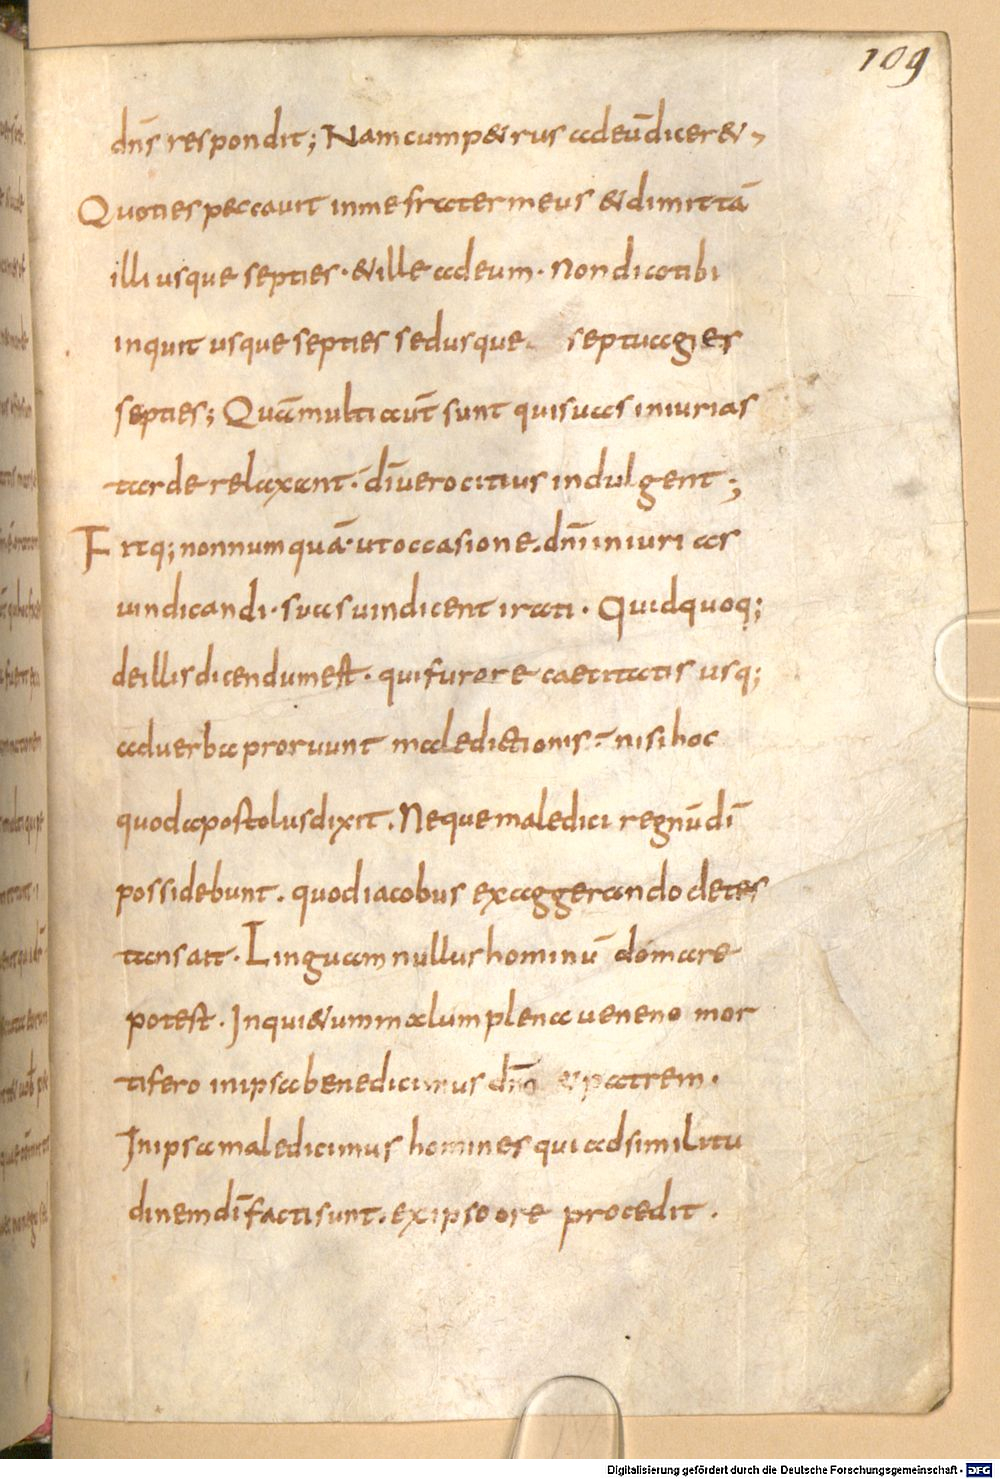 109
dn̄s respondit; Nam cum p&rus ad eū dicer&,
Quoties peccauit in me frater meus & dimittā
illi usque septies · & ille ad eum · Non dico tibi
inquit usque septies sed usque septuagies
septies; Quā multi aūt sunt qui suas iniurias
tarde relaxant · dī uero citius indulgent;
Fitq; nonnumquā · ut occasione dn̄i iniurias
uindicandi · suas uindicent irati · Quid quoq;
de illis dicendum est · qui furore caecitatis usq;
ad uerba proruunt maledictionis · nisi hoc
quod apostolus dixit. Neque maledici regnū dī
possidebunt. quod iacobus exaggerando detes
tans ait · Linguam nullus hominū domare
potest · Inqui&um malum plena ueneno mor
tifero in ipsa benedicimus dm̄ & patrem ·
In ipsa maledicimus homines qui ad similitu
dinem dī facti sunt. ex ipso ore procedit ·
Digitalisierung gefördert durch die Deutsche Forschungsgemeinschaft - DFG